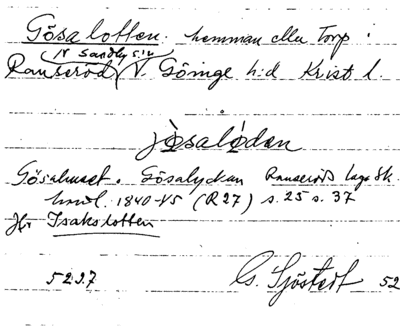 Gösalotten. hemman eller Torp i
(N Sandby s:n)
Ranseröd V. Göinge h:d Krist l.
jòsalódan
Gösahuset. Gösalyckan Ranseröds laga sk.
1840-45 (R27) s. 25 s. 37
Jfr Isakslotten
5297 G. Sjöstedt 52